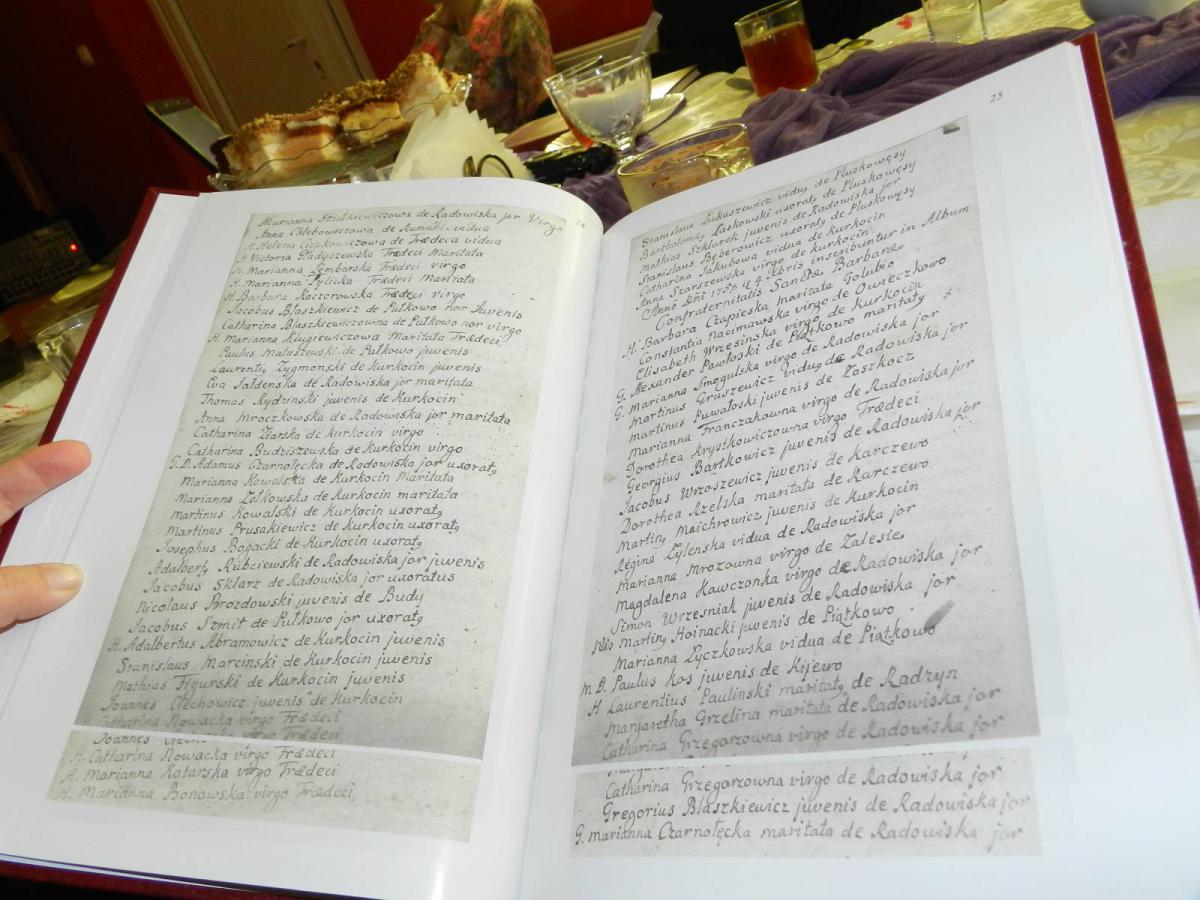 24
Marianna Działkiewiczowa de Radowiska jor Virgo
Anna Chlebowiczowa de Rumunki vidua
H. Helena Czapkowiczowa de Trædeca vidua
H. Victoria Gładyszewska Trædeci Maritata
H. Marianna Lembarska Trædeci virgo
H. Marianna Tylicka Trædeci Maritata
H. Barbara Kaczorowska Trædeci virgo
Jacobus Błaszkiewicz de Pułkowo nor Juvenis
Catharina Błaszkiewiczowna de Pułkowo nor virgo
H. Marianna Klugiewiczowa Maritata Trædeci
Paulus Matuszewski de Pułkowo juvenis
Laurenty Zygmonski de Kurkocin juvenis
Eva Saldenska de Radowiska jor maritata
Thomas Rydzinski juvenis de Kurkocin
Anna Mroczkowska de Radowiska jor maritata
Catharina Ziarska de Kurkocin virgo
Catharina Budziszewska de Kurkocin virgo
G.D. Adamus Czarnołęcka de Radowiska jor uxoratꝯ
Marianna Kowalska de Kurkocin Maritata
Marianna Zołkowska de Kurkocin maritata
Martinus Kowalski de Kurkocin uxoratꝯ
Martinus Prusakiewicz de Kurkocin uxoratꝯ
Josephus Bogacki de Kurkocin uxoratꝯ
Adalbertꝯ Rubciewski de Radowiska jor juvenis
Jacobus Sklarz de Radowiska jor uxoratus
Nicolaus Brozdowski juvenis de Budy
Jacobus Szmit de Pułkowo jor uxoratꝯ
H. Adalbertus Abramowicz de Kurkocin juvenis
Stanislaus Marcinski de Kurkocin juvenis
Mathias Figurski de Kurkocin juvenis
Joannes Ciechowicz juvenis de Kurkocin
Catharina Nowacka virgo Trædeci
Joannes
H. Catharina Nowacka virgo Trædeci
H. Marianna Kotarska virgo Trædeci
H. Marianna Bonowska virgo Trædeci
25
Stanislaus Łukaszewicz viduꝯ de Pluskowęsy
Bartholomꝯ Laskowski uxoratꝯ de Pluskowęsy
Mathias Szklarek juvenis de Radowiska jor
Stanislaus Bęberowicz uxoratꝯ de Pluskowęsy
Catharina Jakubowa vidua de Kurkocin
Anna Szarszewska virgo de Kurkocin
Anno Dñi 1756 d 4 Xbris inscribuntur in Album
Confraternitatis Sanctæ Barbaræ
H. Barbara Czapieska maritata Golubio
Constantia Nacimawska virgo de Owieczkowo
Elisabeth Wrzesinska virgo de Kurkocin
G. Alexander Pawłoski de Piątkowo maritatꝯ
G. Marianna Smogulska virgo de Radowiska jor
Martinus Gruszewicz viduꝯ de Radowiska jor
Martinus Puwałoski juvenis de Zaskocz
Marianna Franczakowna virgo de Radowiska jor
Dorothea Krystkowiczowna virgo Trædeci
Georgius Bartkowicz juvenis de Radowiska jor
Jacobus Wrzoszewicz juvenis de Karczewo
Dorothea Rzelska maritata de Karczewo
Martinꝯ Maichrowicz juvenis de Kurkocin
Regina Zylenska vidua de Radowiska jor
Marianna Mrozowna virgo de Zalesie
Magdalena Kawczonka virgo de Radowiska jor
Simon Wrzesniak juvenis de Radowiska jor
Martinꝯ Hoinacki juvenis de Piątkowo
Marianna Zyczkowska vidua de Piątkowo
M. D. Paulus Kos juvenis de Kijewo
H Laurentius Paulinski maritatꝯ de Radzyn
Margaretha Grzelina maritata de Radowiska jor
Catharina Grzegarzowna virgo de Radowiska jor
Catharina Grzegarzowna virgo de Radowiska jor
Gregorius Blaszkiewicz juvenis de Radowiska jor
G. Marianna Czarnołęcka maritata de Radowiska jor